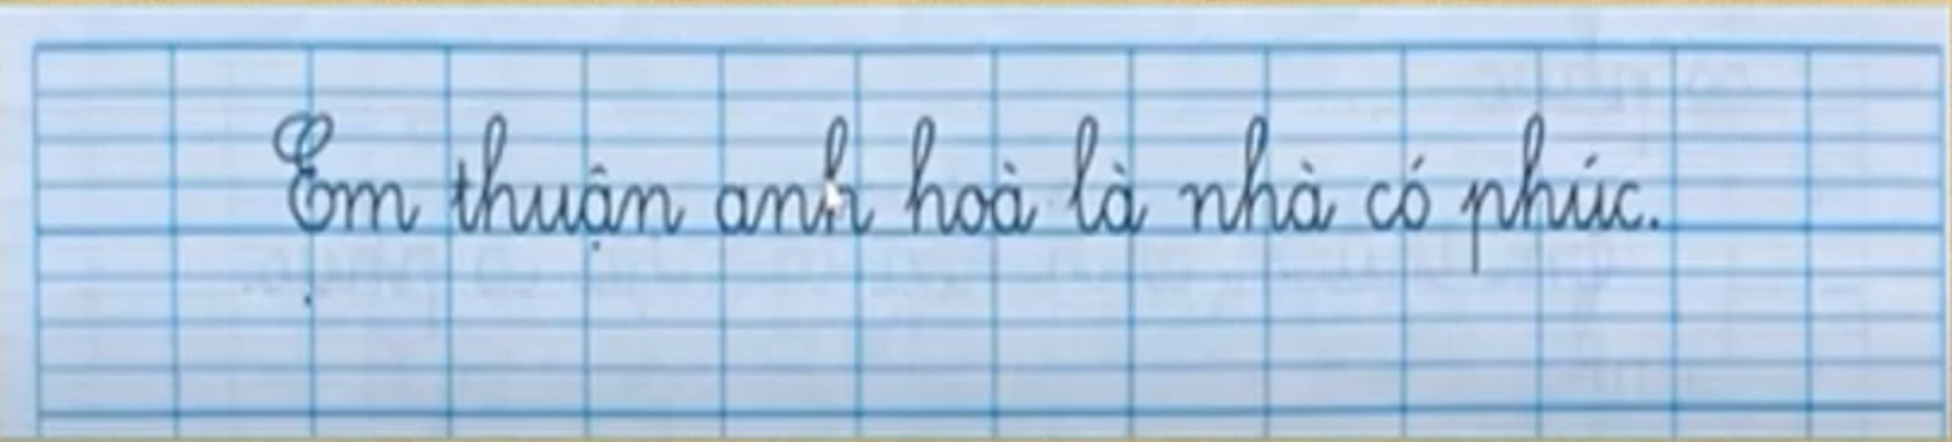 Em thuận anh hoà là nhà có phúc.